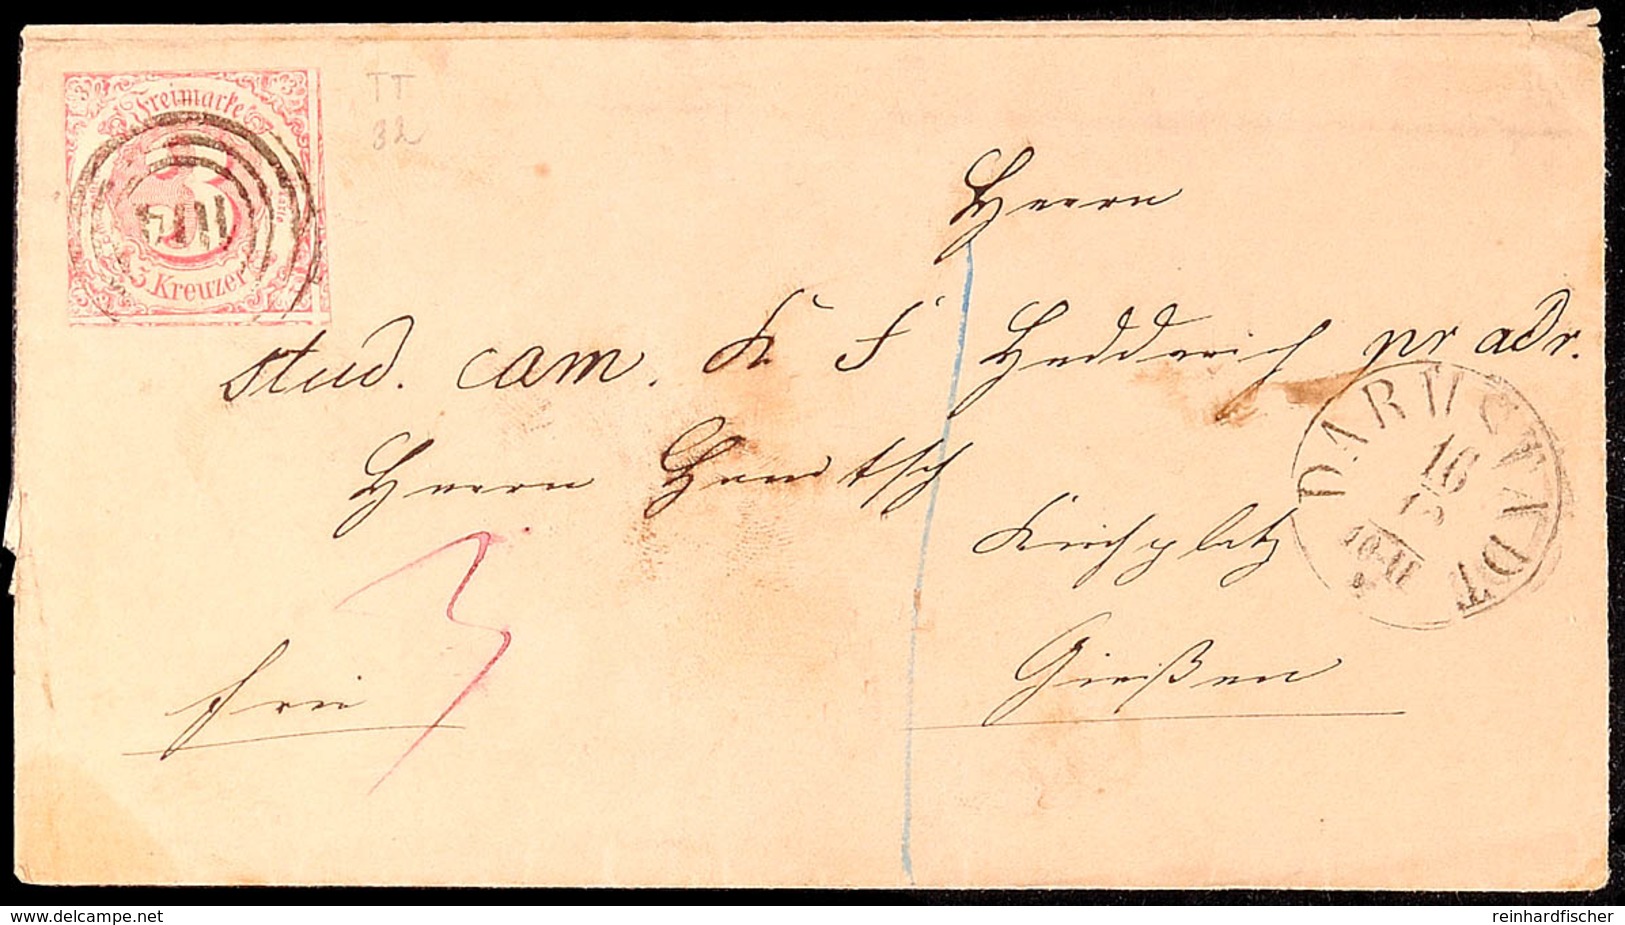 Freimarke
3
3 Kreuzer
TT
32
Herrn
stud. cam. K F Hedderich pr adr.
Herrn Hentsch
Kirchplatz
Gießen
frei
3
DARMSTADT
16
10-11
www.delcampe.net
reinhardfischer